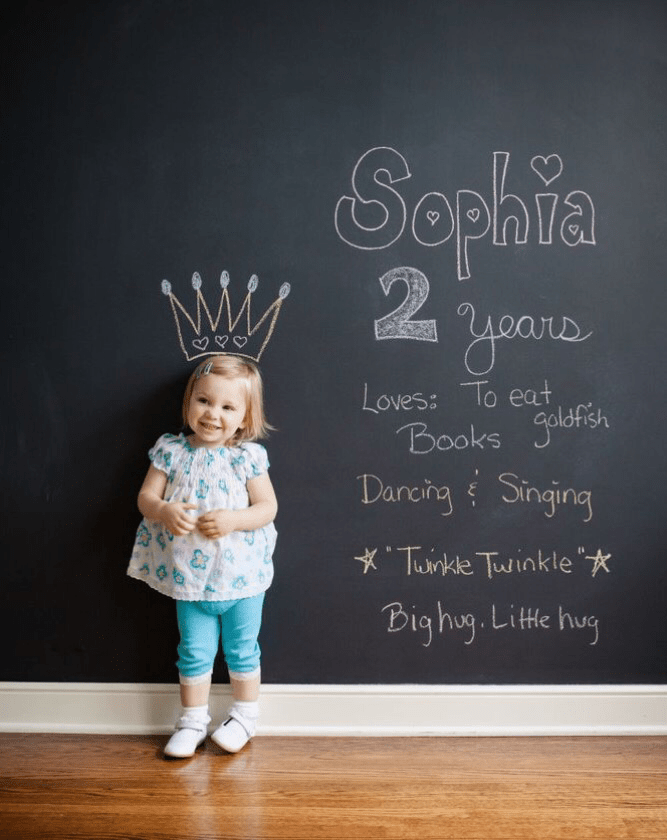 Sophia
2 years
Loves: To eat
goldfish
Books
Dancing & Singing
"Twinkle Twinkle"
Big hug. Little hug